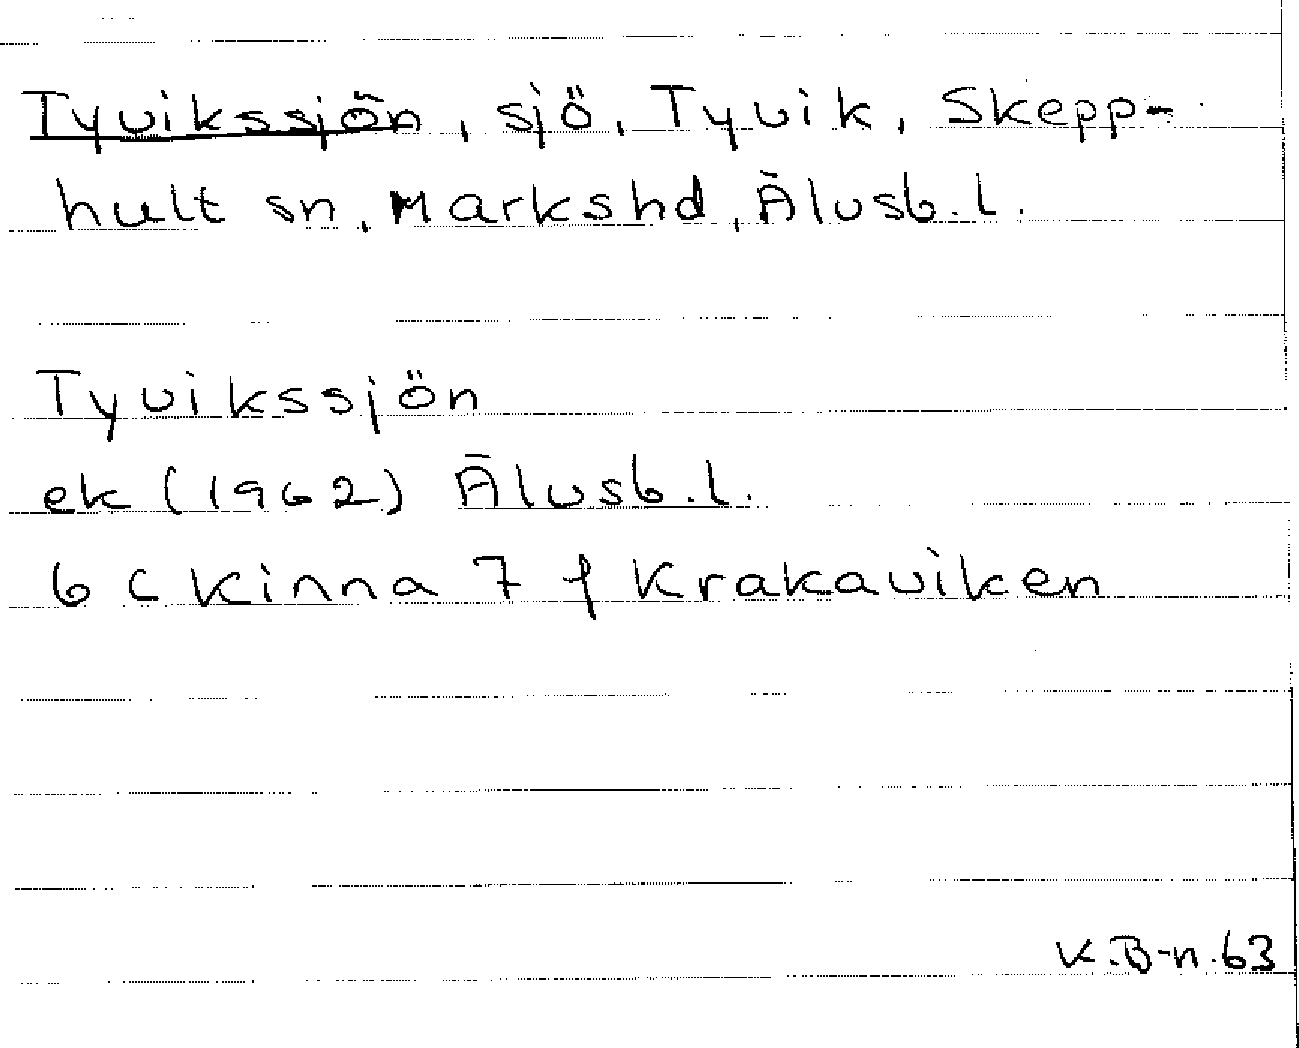 Tyvikssjön, sjö, Tyvik, Skepp-
hult sn, Markshd, Älvsb.l.
Tyvikssjön
ek (1962) Älvsb.l.
6 C Kinna 7 f Krakaviken
K.B-n.63